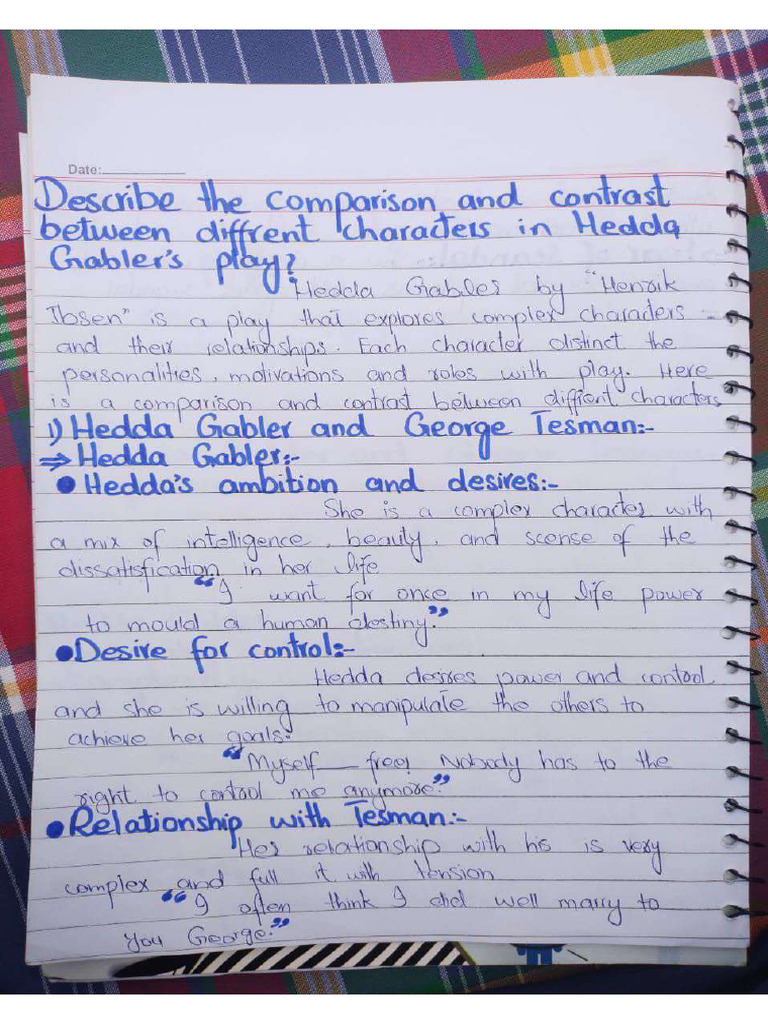 Date:
Describe the comparison and contrast
between diffrent characters in Hedda
Gabler's play?
"Hedda Gabler by "Henrik
Ibsen" is a play that explores complex characters
and their relationships. Each character distinct the
personalities, motivations and roles with play. Here
is a comparison and contrast between diffirent characters
1) Hedda Gabler and George Tesman:-
⇒ Hedda Gabler:-
• Hedda's ambition and desires:-
She is a complex character with
a mix of intelligence, beauty, and scense of the
dissatisfication in her life
"I want for once in my life power
to mould a human destiny."
• Desire for control:-
Hedda desires power and control
and she is willing to manipulate the others to
achieve her goals.
"Myself — free! Nobody has to the
right to control me anymore."
• Relationship with Tesman:-
Her relationship with his is very
complex and full it with tension
"I often think I did well marry to
you George."